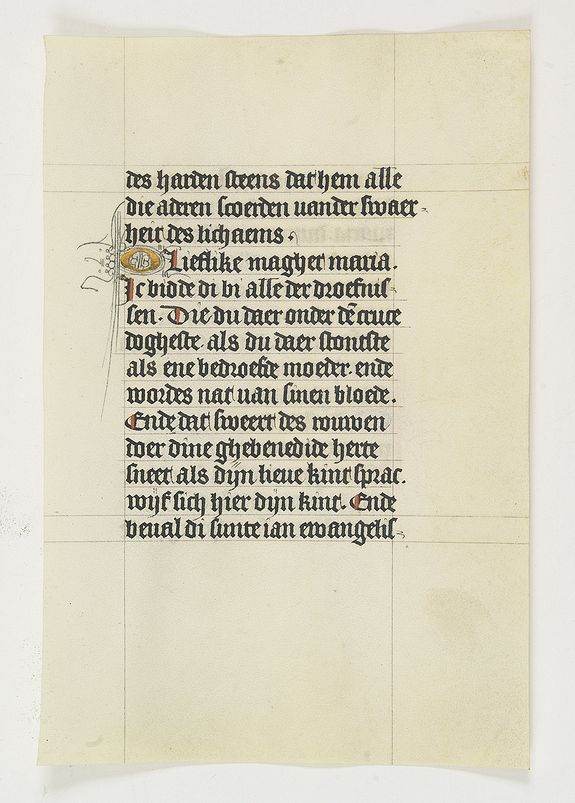 des harden steens dat hem alle
die aderen scoerden vander swaer-
heit des lichaems.
O Lieflike magher maria.
Ic bidde di bi alle der droefnis-
sen. Die du daer onder dē cruce
dogheste. als du daer stontste
als ene bedroefde moeder. ende
wordes nat uan sinen bloede.
Ende dat sweert des rouwen
doer dine ghebenedide herte
sneet als dijn lieue kint sprac.
wijf sich hier dijn kint. Ende
beual di sunte ian ewangelis-